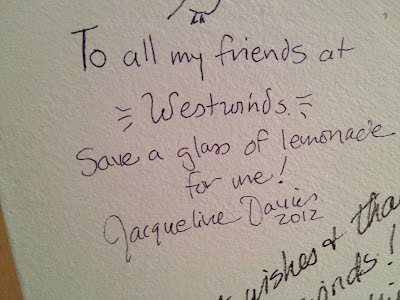 To all my friends at
Westwinds.
Save a glass of lemonade
for me!
Jacqueline Davies
2012
wishes & tha
inds!